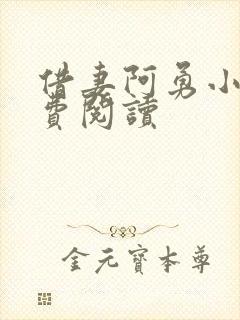 借妻阿勇小
費閱讀
金元寶本尊